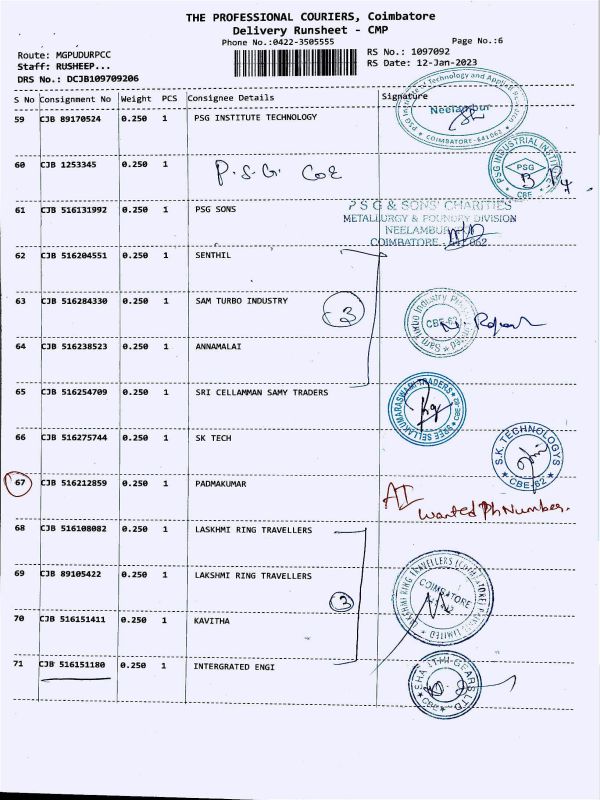 THE PROFESSIONAL COURIERS, Coimbatore
Delivery Runsheet - CMP
Phone No.:0422-3505555
Page No.:6
Route: MGPUDURPCC
RS No.: 1097092
Staff: RUSHEEP...
RS Date: 12-Jan-2023
DRS No.: DCJB109709206
S No Consignment No Weight PCS Consignee Details Signature
59 CJB 89170524 0.250 1 PSG INSTITUTE TECHNOLOGY
PSG Institute of Technology and Applied Research
Neelambur
COIMBATORE-641062
60 CJB 1253345 1 P.S.G. COE
PSG INDUSTRIAL INSTITUTE
PSG
CBE
61 CJB 516131992 0.250 1 PSG SONS
P S G & SONS' CHARITIES
METALLURGY & FOUNDRY DIVISION
NEELAMBUR
COIMBATORE - 641 062
62 CJB 516204551 0.250 1 SENTHIL
63 CJB 516284330 0.250 1 SAM TURBO INDUSTRY
3
Sam Turbo Industry Private Limited
CBE-62
64 CJB 516238523 0.250 1 ANNAMALAI
65 CJB 516254709 0.250 1 SRI CELLAMMAN SAMY TRADERS
SREE SELLAKUMARASWAMI TRADERS
66 CJB 516275744 0.250 1 SK TECH
S.K. TECHNOLOGYS
CBE-62
67 CJB 516212859 0.250 1 PADMAKUMAR
AI
wanted Ph Number.
68 CJB 516108082 0.250 1 LASKHMI RING TRAVELLERS
69 CJB 89105422 0.250 1 LAKSHMI RING TRAVELLERS
3
LAKSHMI RING TRAVELLERS (COIMBATORE) PRIVATE LIMITED
COIMBATORE
70 CJB 516151411 0.250 1 KAVITHA
71 CJB 516151180 0.250 1 INTERGRATED ENGI
SHANTHI GEARS LTD
CBE